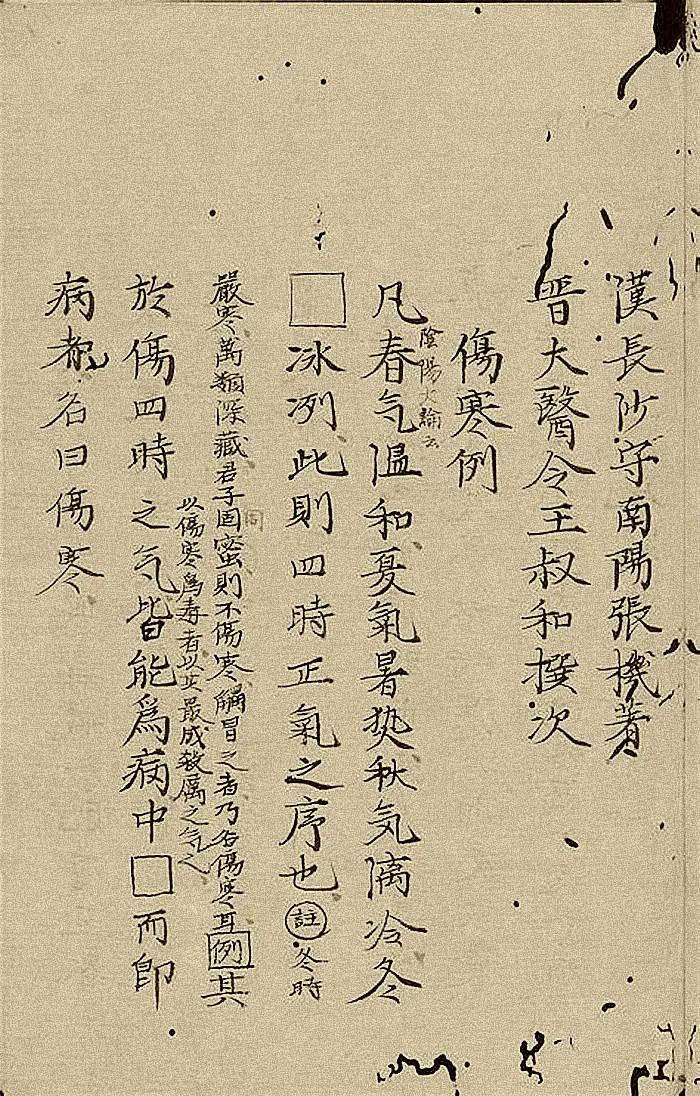 漢長沙守南陽張機著
晋大醫令王叔和撰次
傷寒例
陰陽大論云
凡春气温和夏氣暑𤍠秋気漓冷冬
□冰冽此則四時正氣之序也註冬時
嚴寒萬類深藏君子固蜜則不傷寒觸冒之者乃名傷寒耳例其
同
於傷四時之气皆能爲病中□而即
以傷寒爲毒者以其最成殺厲之气也
病者名曰傷寒